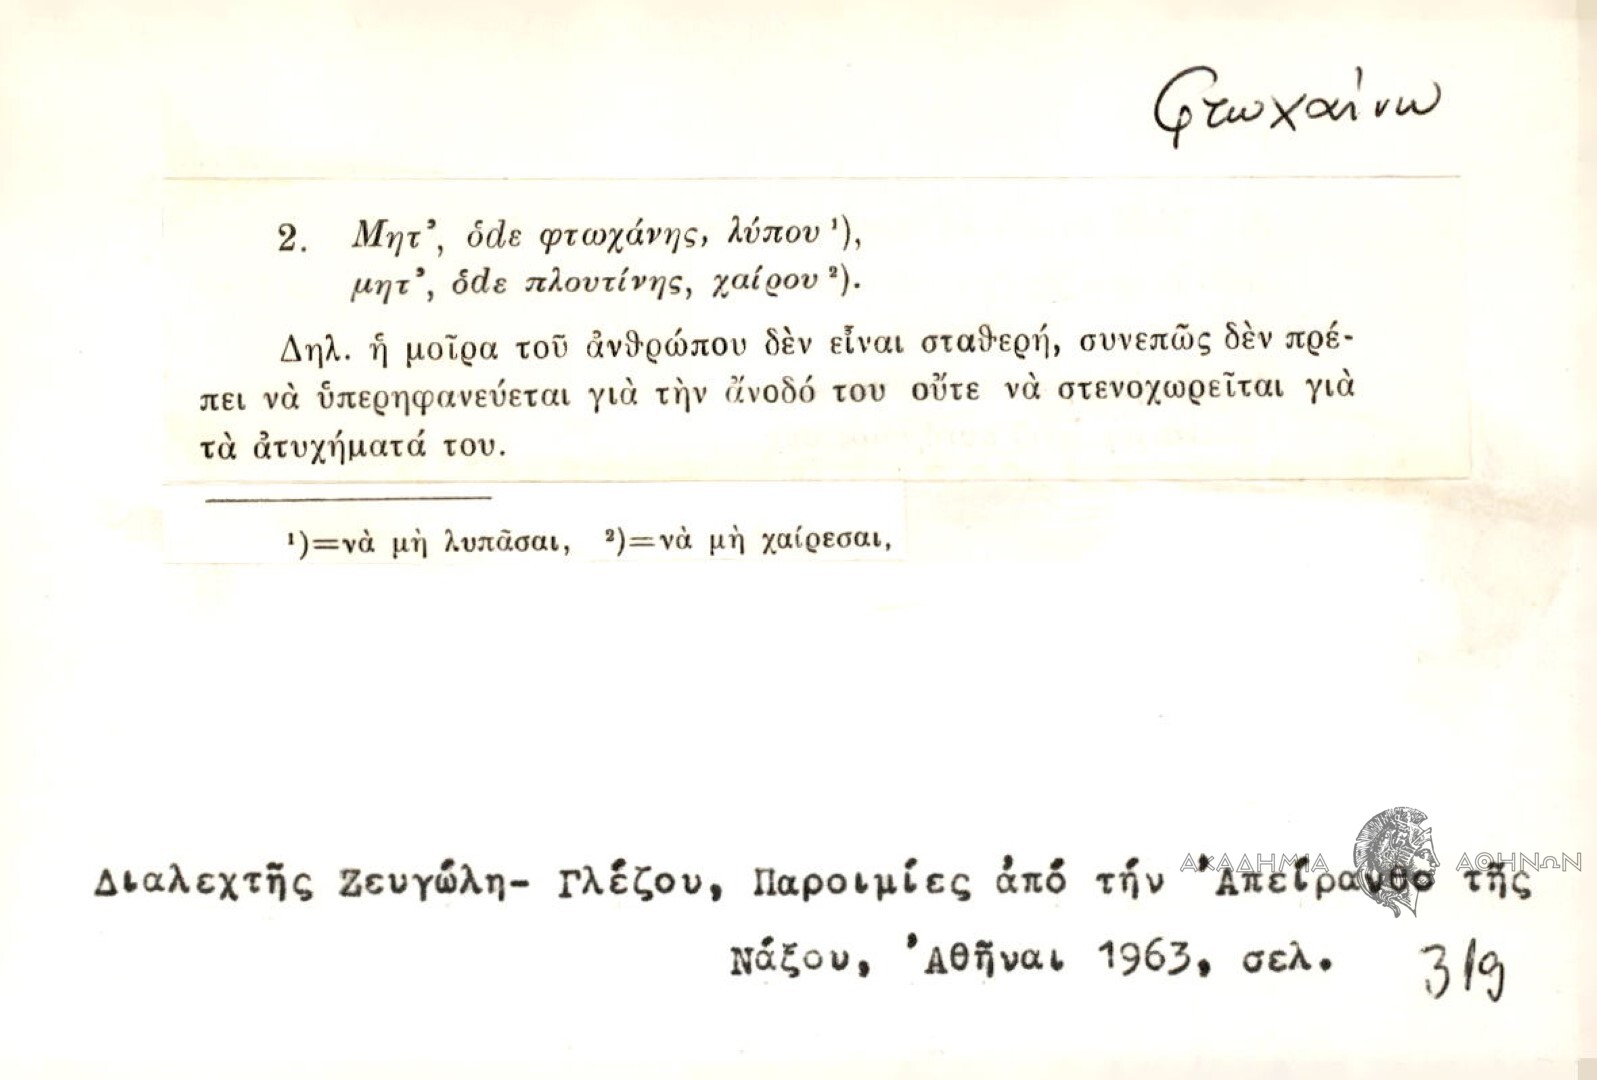 Φτωχαίνω
2. Μητ’, ὅdε φτωχάνης, λύπου ¹),
μητ’, ὅdε πλουτίνης, χαίρου ²).
Δηλ. ἡ μοῖρα τοῦ ἀνθρώπου δὲν εἶναι σταθερή, συνεπῶς δὲν πρέ-
πει νὰ ὑπερηφανεύεται γιὰ τὴν ἄνοδό του οὔτε νὰ στενοχωρεῖται γιὰ
τὰ ἀτυχήματά του.
¹)=νὰ μὴ λυπᾶσαι, ²)=νὰ μὴ χαίρεσαι,
ΑΚΑΔΗΜΙΑ ΑΘΗΝΩΝ
Διαλεχτῆς Ζευγώλη- Γλέζου, Παροιμίες ἀπό τήν Ἀπείρανθο τῆς
Νάξου, Ἀθῆναι 1963, σελ. 319